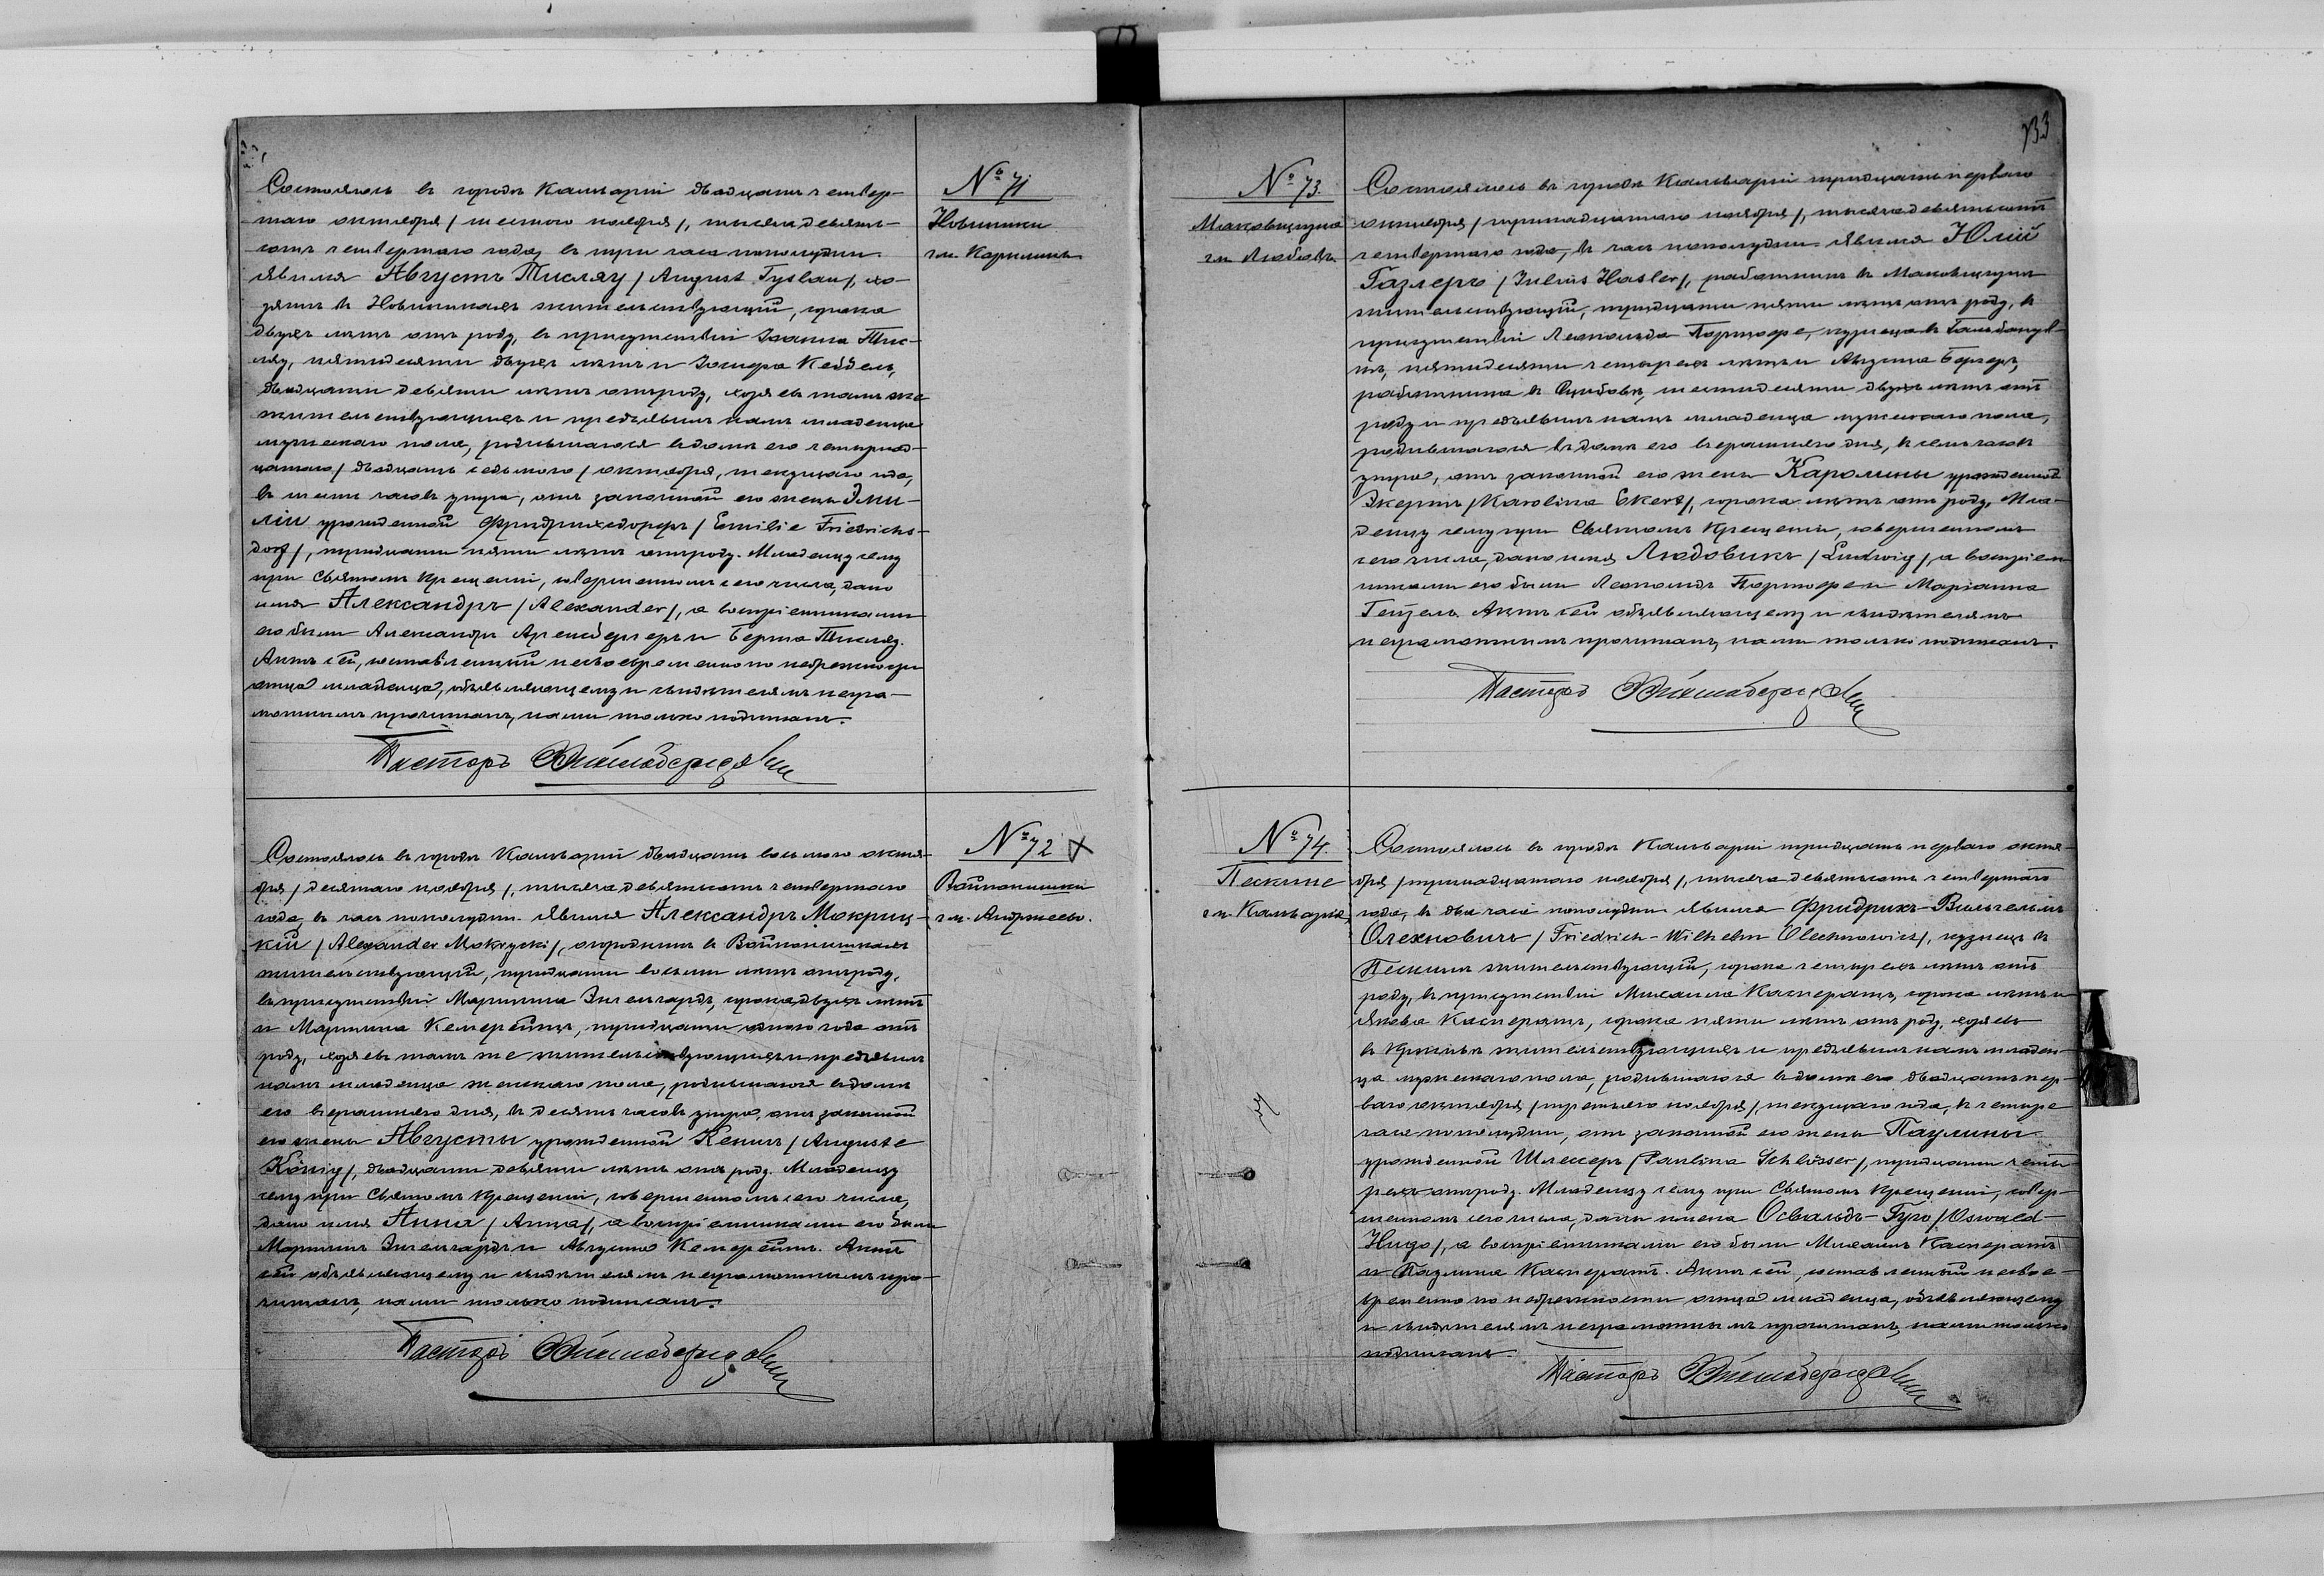 № 71
Новиники
гм. Карклины
Состоялось въ городѣ Кальваріи двадцать четвер-
таго октября /шестого ноября/, тысяча девять-
сотъ четвертаго года, въ три часа пополудни
явился Августъ Тислау /August Tyslau/, хо-
зяинъ въ Новиникахъ жительствующій, сорока
двухъ лѣтъ отъ роду, въ присутствіи Іоанна Тис-
лау, пятидесяти двухъ лѣтъ и Іосифа Кейдель,
двадцати девяти лѣтъ отъ роду, хозяевъ тамъ же
жительствующихъ и предъявилъ намъ младенца
мужескаго пола, родившагося въ домѣ его четырнад-
цатаго /двадцать седьмого/ октября, текущаго года,
въ шесть часовъ утра, отъ законной его жены Эми-
ліи урожденной Фридрихсдорфъ /Emilie Friedrichs-
dorf/, тридцати пяти лѣтъ отъ роду. Младенцу сему
при Святомъ Крещеніи, совершенномъ сего числа, дано
имя Александръ /Alexander/, а воспріемниками
его были Александръ и Берта Тислау.
Актъ сей, составленный несвоевременно по небрежности
отца младенца, объявляющему и свидѣтелямъ негра-
мотнымъ прочитанъ, нами только подписанъ.
Пасторъ
№ 72 X
Войпонишки
гм. Андржеево.
Состоялось въ городѣ Кальваріи двадцать восьмого октя-
бря /десятаго ноября/, тысяча девятьсотъ четвертаго
года, въ часъ пополудни явился Александръ Мокриц-
кій /Alexander Mokrycki/, огородникъ въ Войпонишкахъ
жительствующій, тридцати восьми лѣтъ отъ роду,
въ присутствіи Мартина Энгельгардъ, сорока двухъ лѣтъ
и Мартина Кемерейтъ, тридцати одного года отъ
роду, хозяевъ тамъ же жительствующихъ и предъявилъ
намъ младенца женскаго пола, родившагося въ домѣ
его вчерашняго дня, въ десять часовъ утра, отъ законной
его жены Августы урожденной Кенигъ /Auguste
König/, двадцати девяти лѣтъ отъ роду. Младенцу
сему при Святомъ Крещеніи, совершенномъ сего числа,
дано имя Анна /Anna/, а воспріемниками его были
Мартинъ Энгельгардъ и Августа Кемерейтъ. Актъ
сей объявляющему и свидѣтелямъ неграмотнымъ про-
читанъ, нами только подписанъ.
Пасторъ
733
№ 73.
Маковщизна
гм. Любовъ.
Состоялось въ городѣ Кальваріи тридцать перваго
октября /тринадцатаго ноября/, тысяча девятьсотъ
четвертаго года, въ часъ пополудни явился Юлій
Газлеръ /Julius Hasler/, работникъ въ Маковщизнѣ
жительствующій, тридцати пяти лѣтъ отъ роду, въ
присутствіи Леопольда Портофе, кузнеца въ
пятидесяти четырехъ лѣтъ и Августа Бергеръ,
работника въ шестидесяти двухъ лѣтъ отъ
роду и предъявилъ намъ младенца мужескаго пола,
родившагося въ домѣ его вчерашняго дня, въ семь часовъ
утра, отъ законной его жены Каролины урожденной
Экертъ /Karolina Ekert/, сорока лѣтъ отъ роду. Мла-
денцу сему при Святомъ Крещеніи, совершенномъ
сего числа, дано имя Людовикъ /Ludwig/, а воспріем-
никами его были Леопольдъ Портофе и Маріанна
Гецель. Актъ сей объявляющему и свидѣтелямъ
неграмотнымъ прочитанъ, нами только подписанъ.
Пасторъ
№ 74.
Пескине
гм. Кальварія
Состоялось въ городѣ Кальваріи тридцать перваго октя-
бря /тринадцатаго ноября/, тысяча девятьсотъ четвертаго
года, въ два часа пополудни явился Фридрихъ-Вильгельмъ
Олехновичъ /Friedrich-Wilhelm Olechnowicz/, кузнецъ въ
Пескинѣ жительствующій, сорока четырехъ лѣтъ отъ
роду, въ присутствіи Михаила Касператъ, сорока лѣтъ и
Якова Касператъ, сорока пяти лѣтъ отъ роду, хозяевъ
въ жительствующихъ и предъявилъ намъ младен-
ца мужескаго пола, родившагося въ домѣ его двадцать пер-
ваго октября /третьяго ноября/, текущаго года, въ четыре
часа пополудни, отъ законной его жены Паулины
урожденной Шлесеръ /Paulina Schlösser/, тридцати четы-
рехъ отъ роду. Младенцу сему при Святомъ Крещеніи, совер-
шенномъ сего числа, даны имена Освальдъ-Гуго /Oswald-
Hugo/, а воспріемниками его были Михаилъ Касператъ
и Паулина Касператъ. Актъ сей, составленный несвое-
временно по небрежности отца младенца, объявляющему
и свидѣтелямъ неграмотнымъ прочитанъ, нами только
подписанъ.
Пасторъ